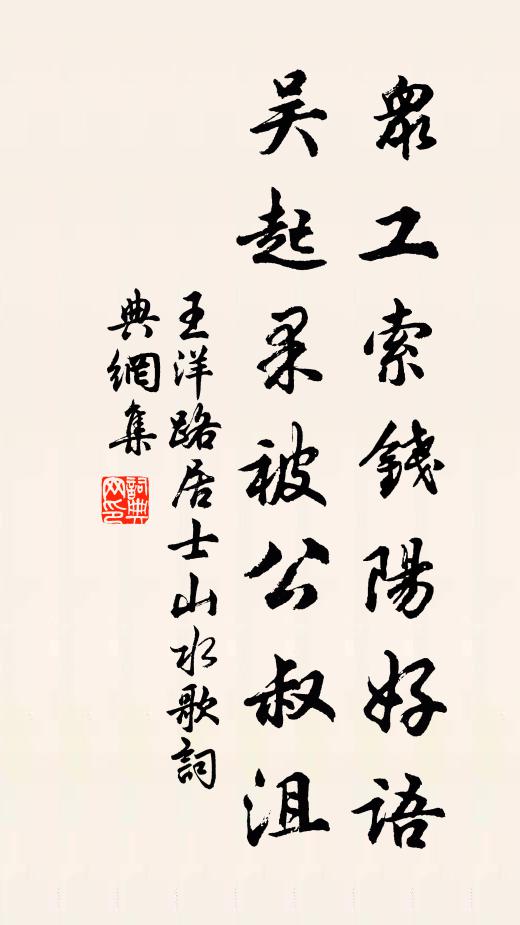 眾工索錢陽好語
吴起果被公叔沮
王洋路居士山水歌詞
典網集
詞典網印